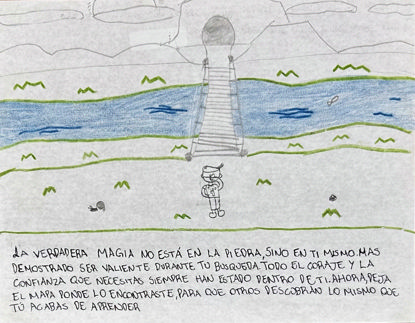 LA VERDADERA MAGIA NO ESTÁ EN LA PIEDRA, SINO EN TI MISMO. MAS
DEMOSTRADO SER VALIENTE DURANTE TU BUSQUEDA. TODO EL CORAJE Y LA
CONFIANZA QUE NECESITAS SIEMPRE HAN ESTADO DENTRO DE TI. AHORA, DEJA
EL MAPA DONDE LO ENCONTRASTE, PARA QUE OTROS DESCUBRAN LO MISMO QUE
TÚ ACABAS DE APRENDER